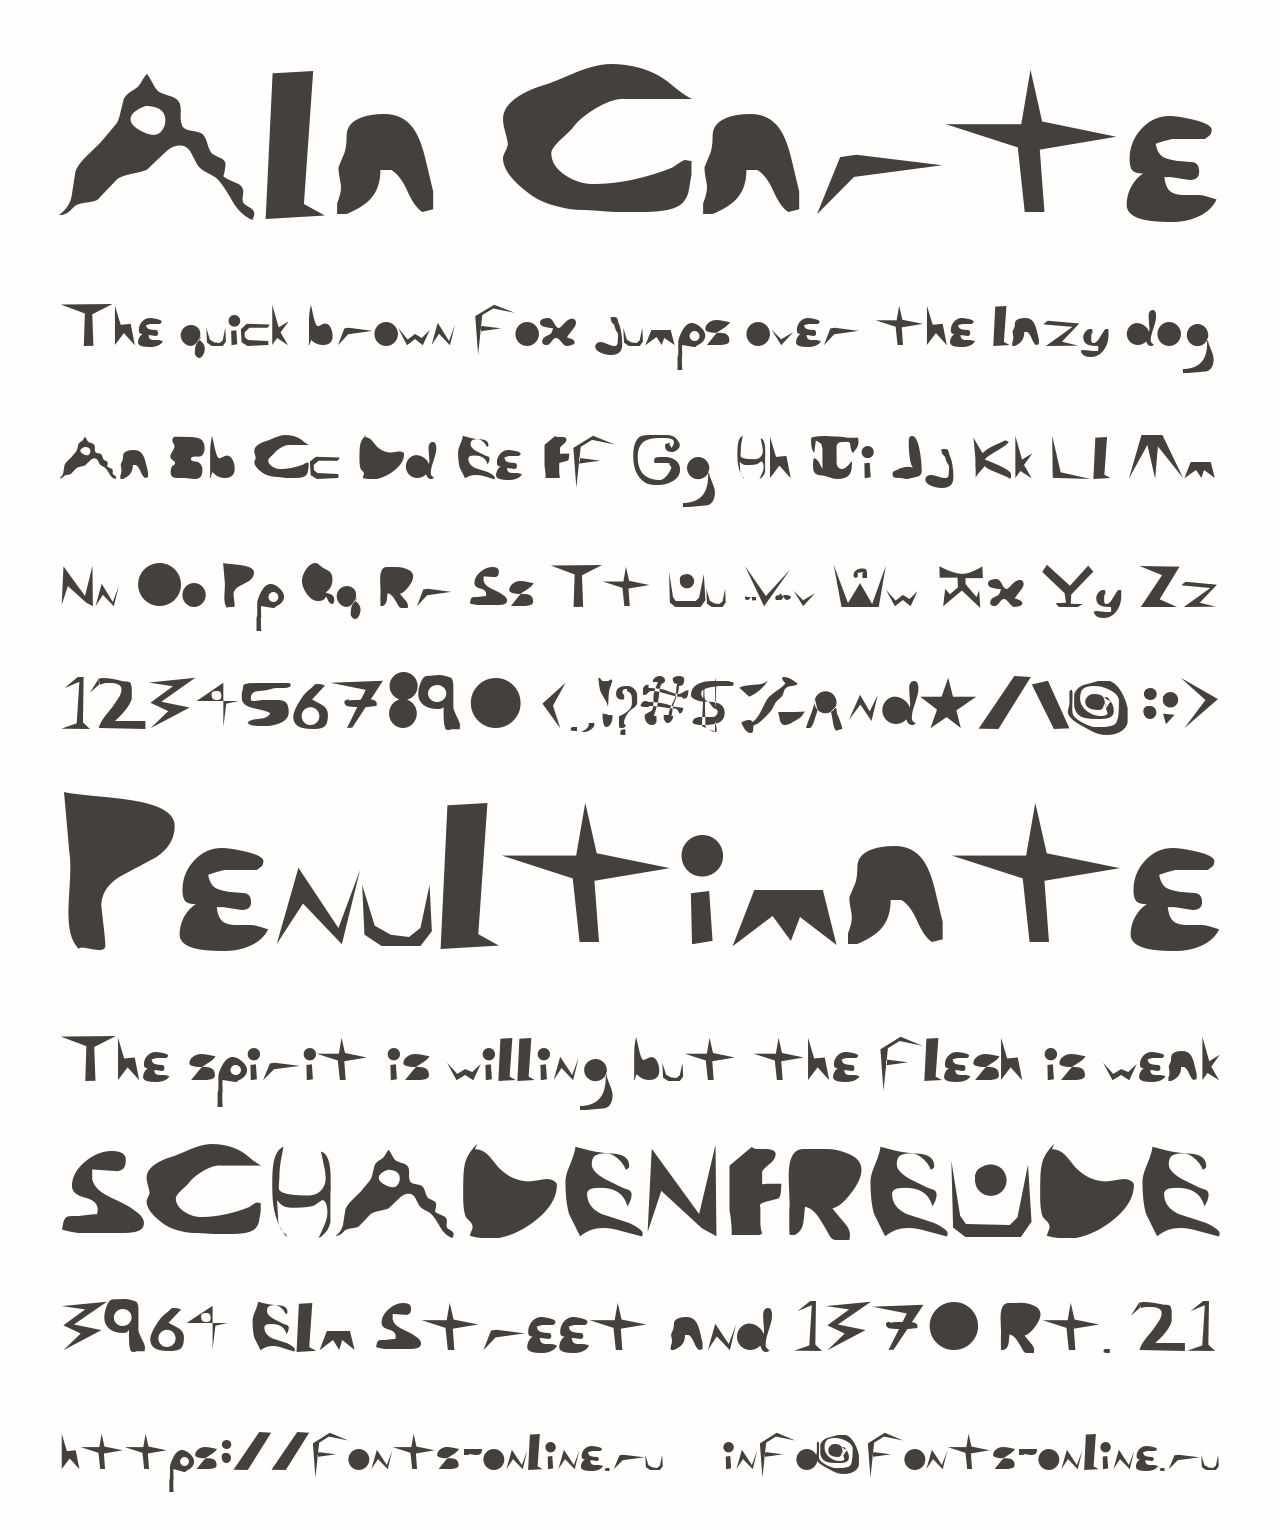 Ala Carte
The quick brown fox jumps over the lazy dog
Aa Bb Cc Dd Ee Ff Gg Hh Ii Jj Kk Ll Mm
Nn Oo Pp Qq Rr Ss Tt Uu Vv Ww Xx Yy Zz
1234567890 <.,!?#$%^&*/\@:;>
Penultimate
The spirit is willing but the flesh is weak
SCHADENFREUDE
3964 Elm Street and 1370 Rt. 21
https://fonts-online.ru info@fonts-online.ru